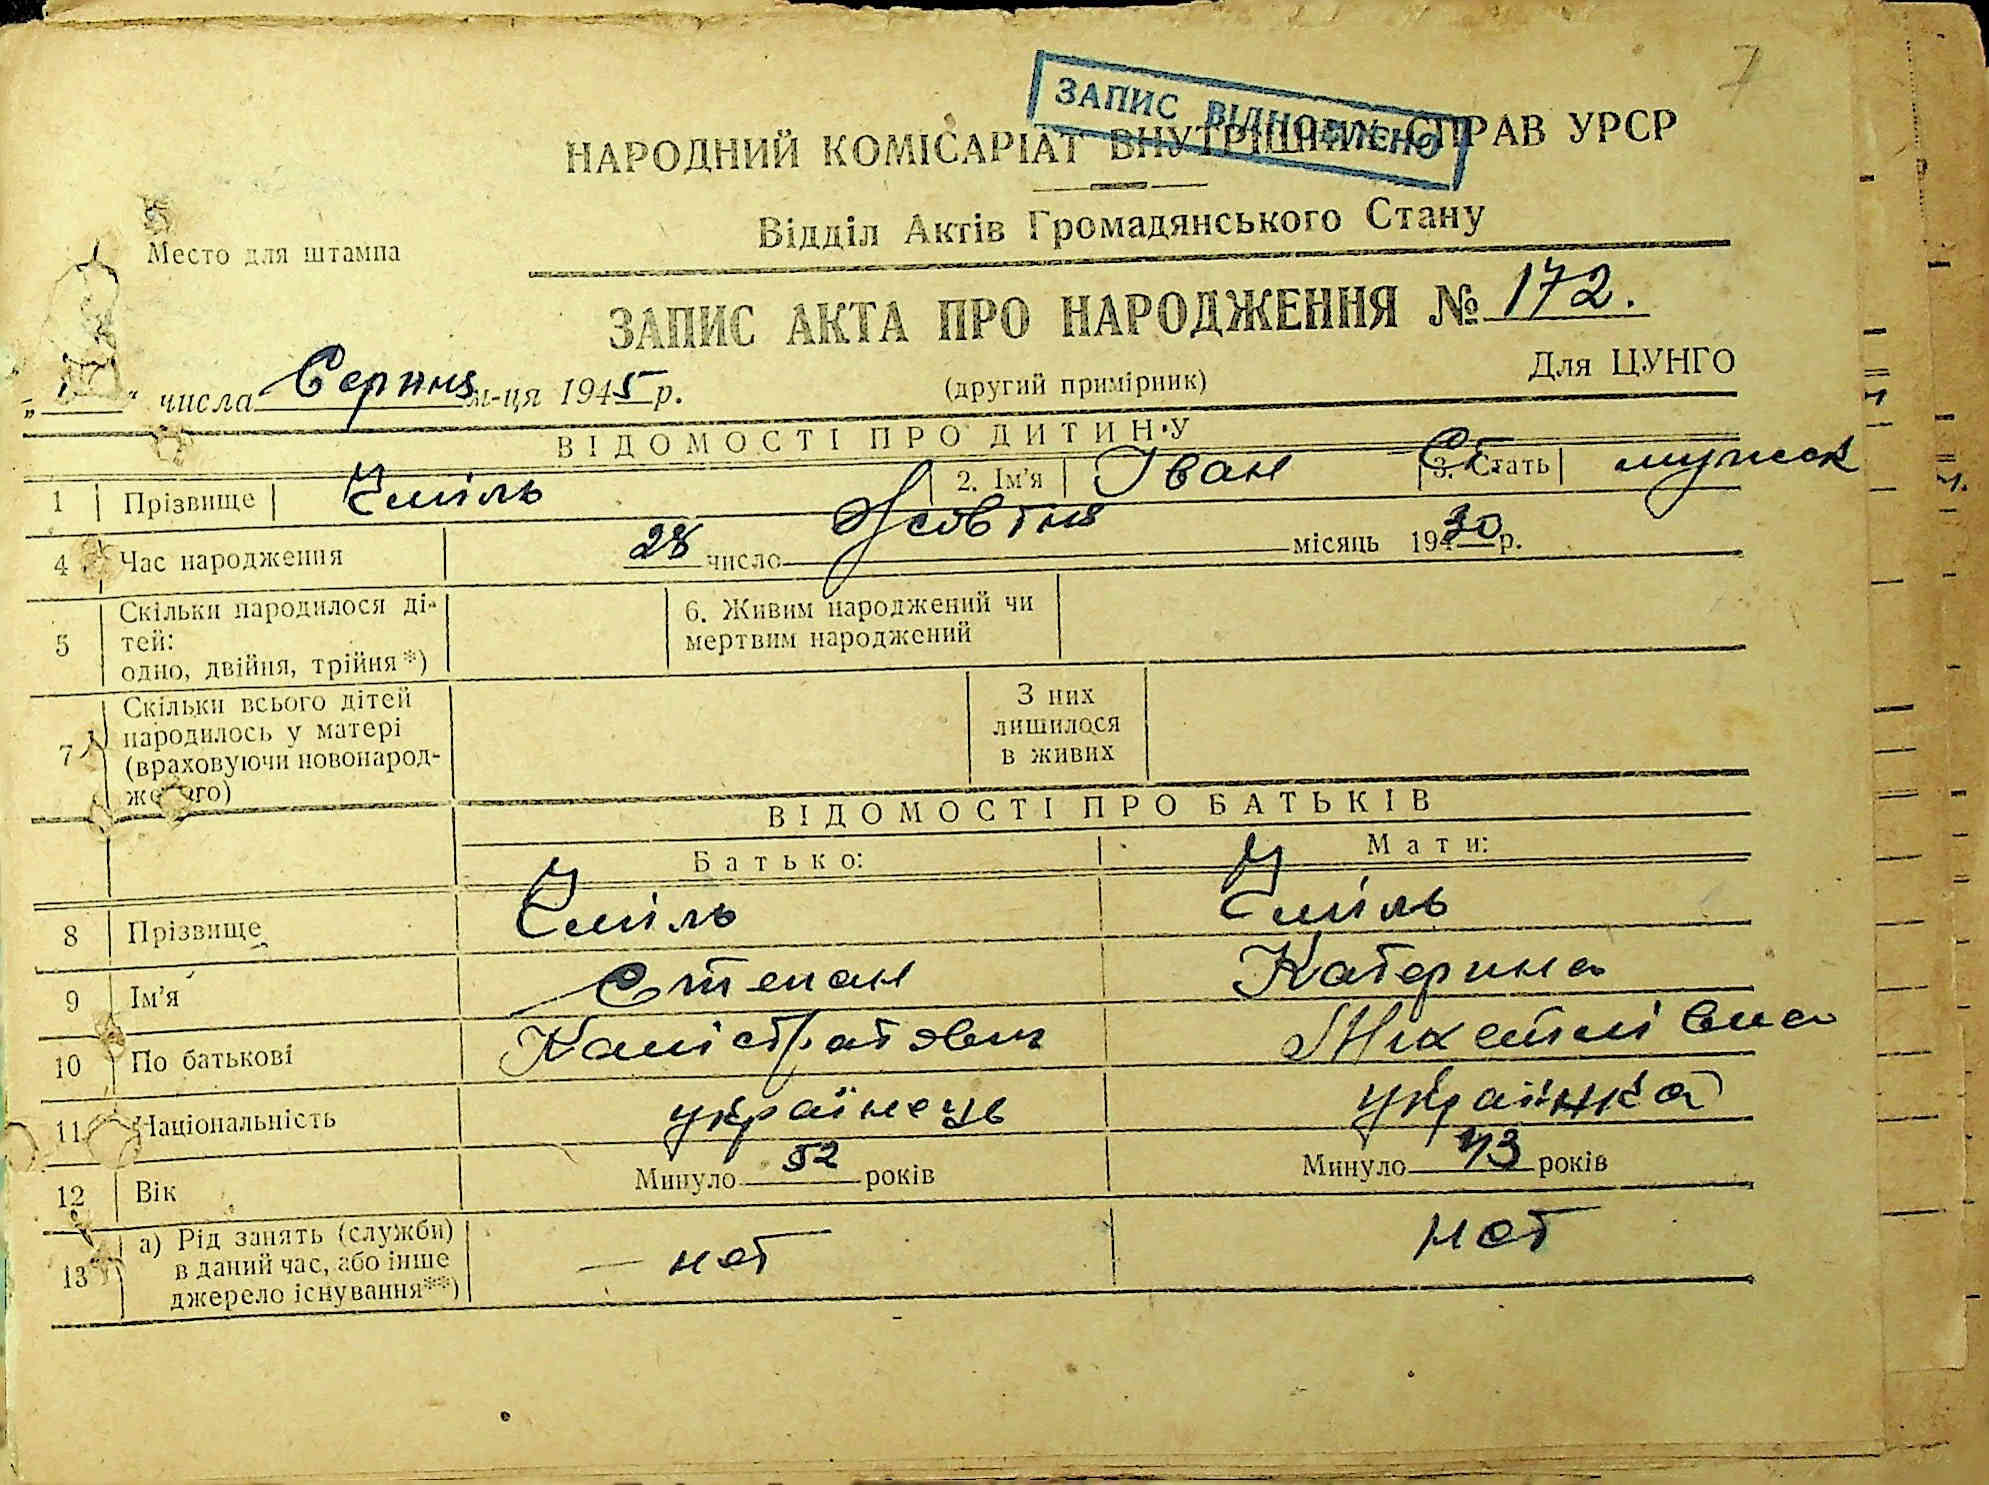 7
ЗАПИС ВІДНОВЛЕНО
НАРОДНИЙ КОМІСАРІАТ ВНУТРІШНІХ СПРАВ УРСР
Відділ Актів Громадянського Стану
Место для штампа
ЗАПИС АКТА ПРО НАРОДЖЕННЯ № 172.
Для ЦУНГО
„ “ числа Серпня м-ця 1945 р. (другий примірник)
ВІДОМОСТІ ПРО ДИТИНУ
1 Прізвище Чміль 2. Ім'я Іван Ст. 3. Стать мужск
4 Час народження 28 число Жовтня місяць 1930 р.
5 Скільки народилося ді-
тей:
одно, двійня, трійня*)
6. Живим народжений чи
мертвим народжений
7 Скільки всього дітей
народилось у матері
(враховуючи новонарод-
женого)
З них
лишилося
в живих
ВІДОМОСТІ ПРО БАТЬКІВ
Батько: Мати:
8 Прізвище Чміль Чміль
9 Ім'я Степан Катерина
10 По батькові Калістратович Михайлівна
11 Національність українець українка
12 Вік Минуло 52 років Минуло 43 років
13 а) Рід занять (служби)
в даний час, або інше
джерело існування**)
— нет нет